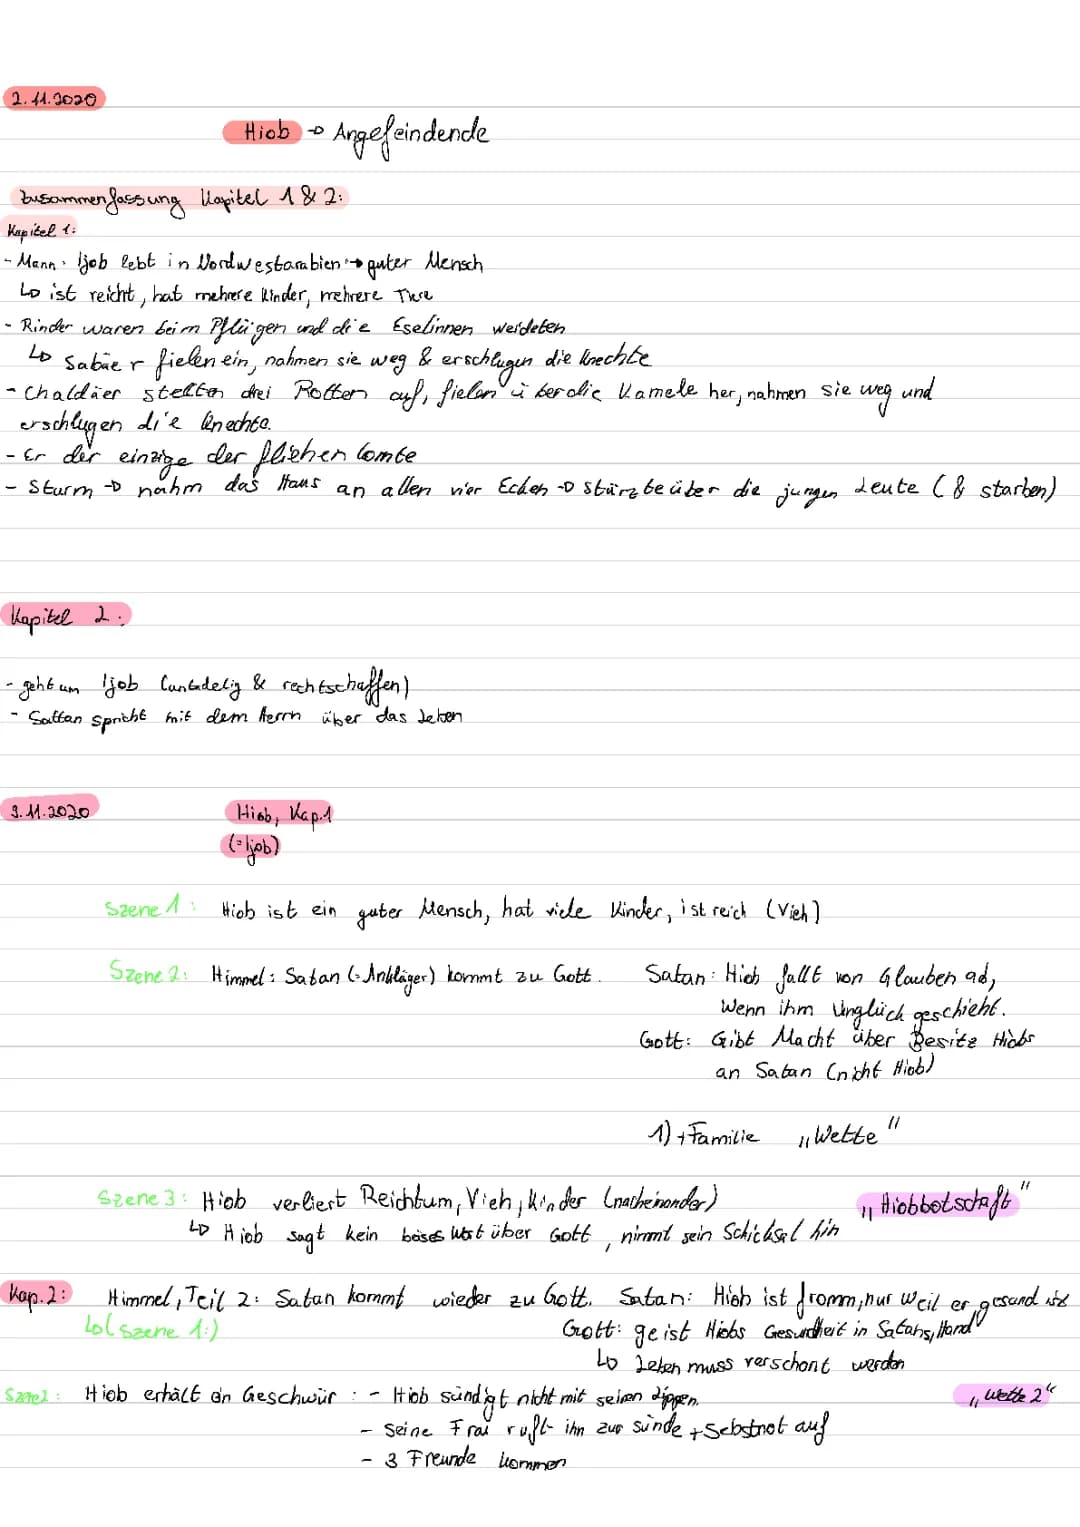 2.11.2020
Hiob → Angefeindende
Zusammenfassung Kapitel 1 & 2:
Kapitel 1:
- Mann: Ijob lebt in Nordwestarabien → guter Mensch
↳ ist reicht, hat mehrere Kinder, mehrere Tiere
- Rinder waren beim Pflügen und die Eselinnen weideten
↳ Sabäer fielen ein, nahmen sie weg & erschlugen die Knechte
- Chaldäer stellten drei Rotten auf, fielen über die Kamele her, nahmen sie weg und
erschlugen die Knechte.
- Er der einzige der fliehen konnte
- Sturm → nahm das Haus an allen vier Ecken → stürzte über die jungen Leute (& starben)
Kapitel 2:
- geht um Ijob (untadelig & rechtschaffen)
- Sattan spricht mit dem Herrn über das Leben
3.11.2020
Hiob, Kap.1
(=Ijob)
Szene 1: Hiob ist ein guter Mensch, hat viele Kinder, ist reich (Vieh)
Szene 2: Himmel: Satan (=Ankläger) kommt zu Gott. Satan: Hiob fällt von Glauben ab,
Wenn ihm Unglück geschieht.
Gott: Gibt Macht über Besitz Hiobs
an Satan (nicht Hiob)
1) + Familie „Wette"
Szene 3: Hiob verliert Reichtum, Vieh, Kinder (nacheinander) „Hiobbotschaft"
↳ Hiob sagt kein böses Wort über Gott, nimmt sein Schicksal hin
Kap.2: Himmel, Teil 2: Satan kommt wieder zu Gott. Satan: Hiob ist fromm, nur weil er gesund ist
↳(Szene 1:) Gott: ge ist Hiobs Gesundheit in Satans „Hand"
↳ Leben muss verschont werden
Szene2: Hiob erhält ein Geschwür: - Hiob sündigt nicht mit seinen Lippen. „Wette 2"
- seine Frau ruft ihn zur Sünde + Sebstnot auf
- 3 Freunde kommen